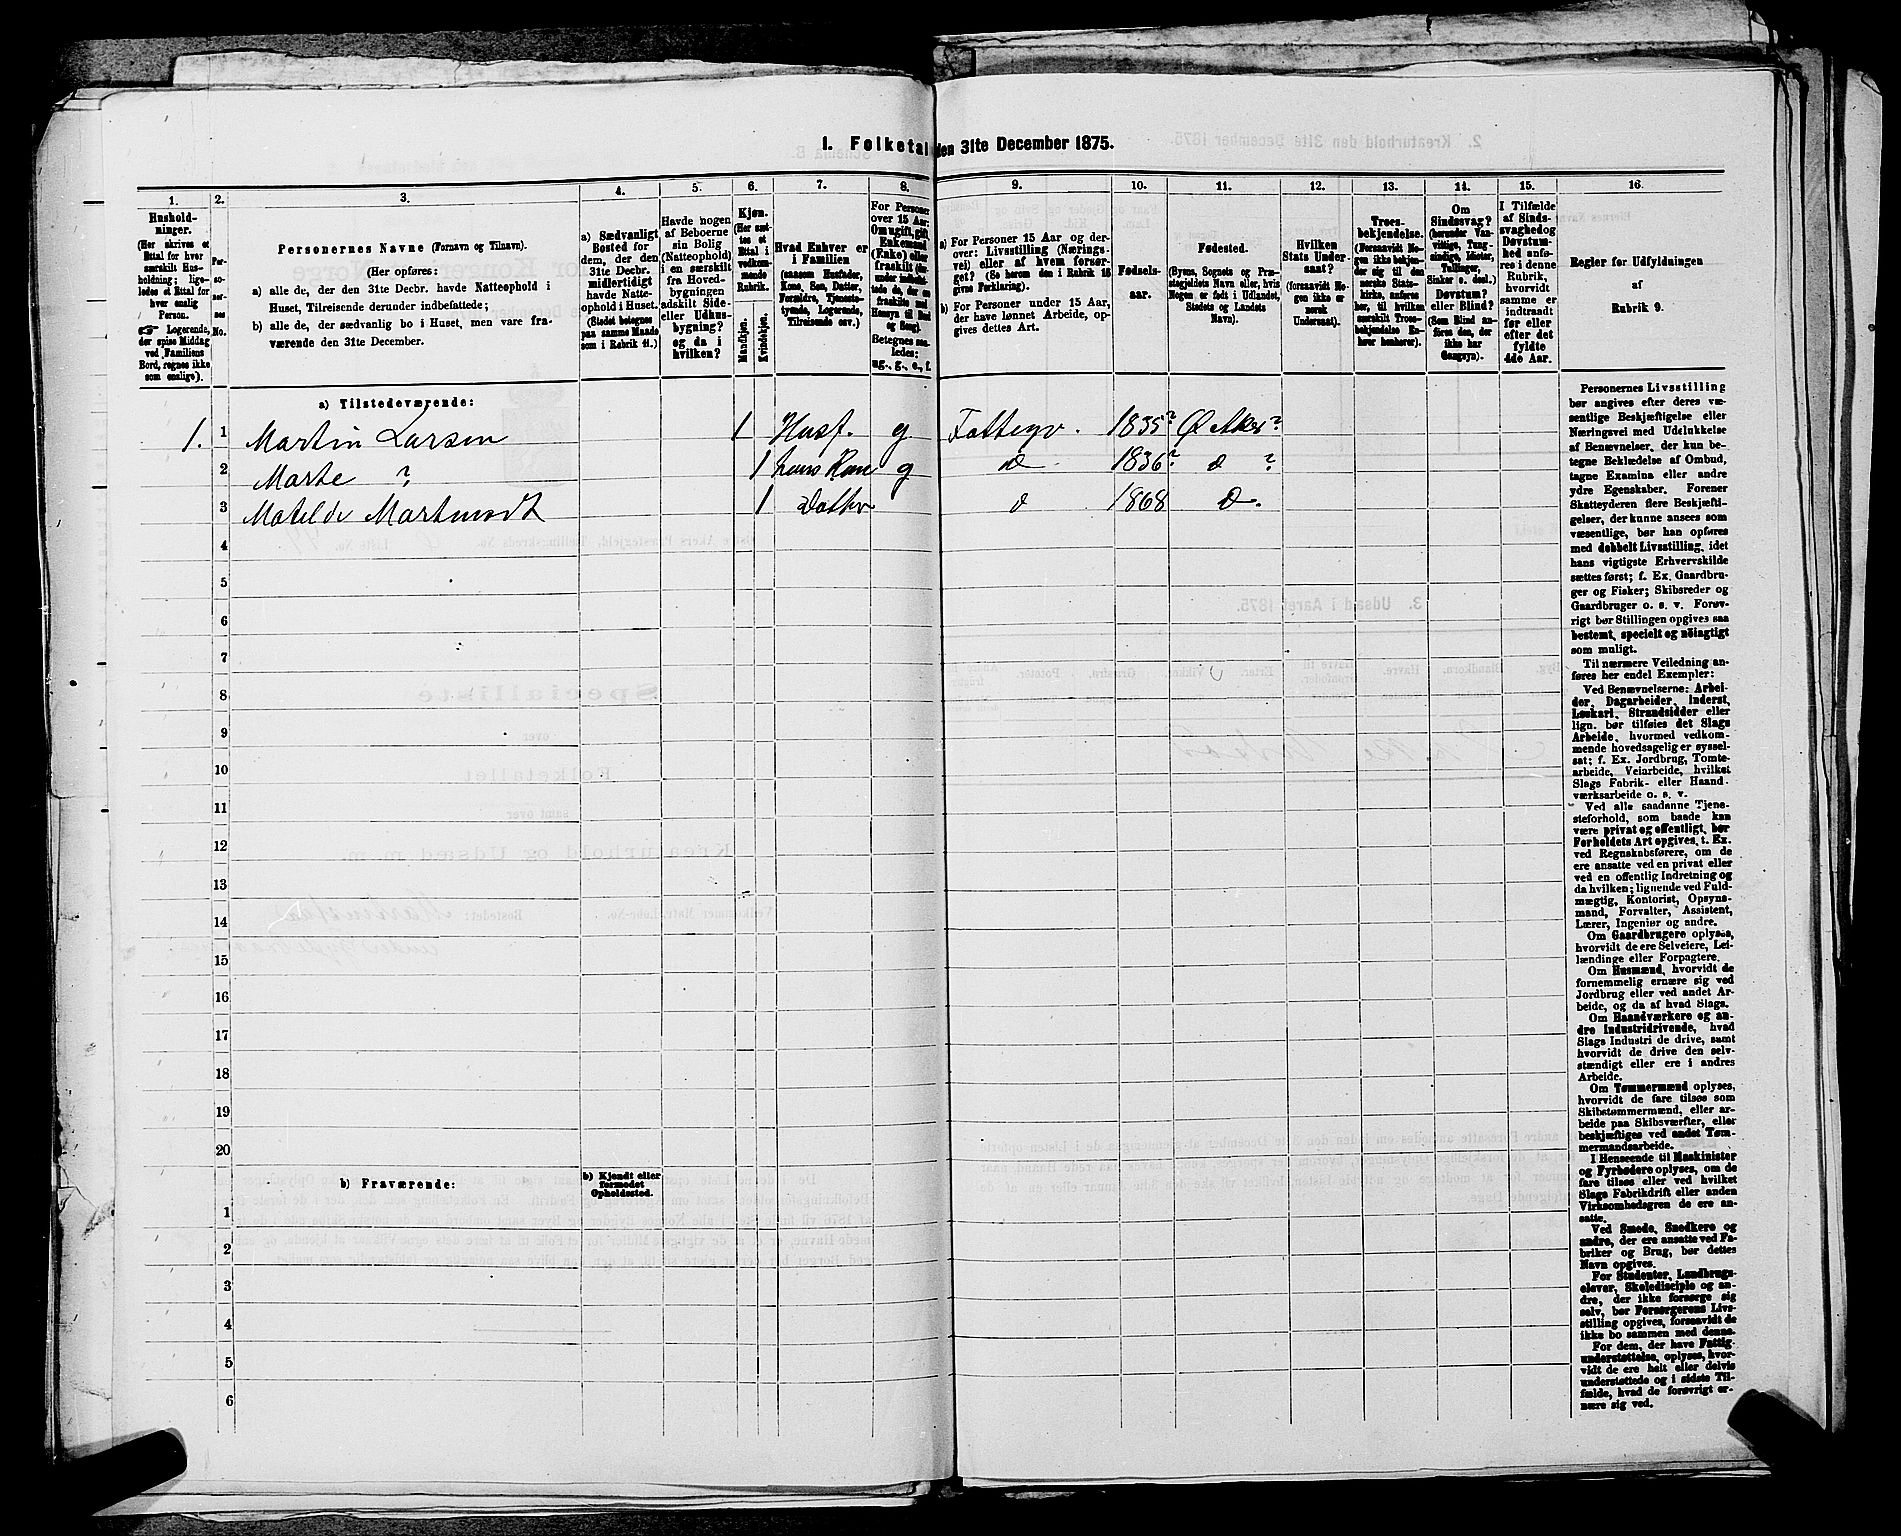 1. Folketal den 31te December 1875.
1.
Hushold-
ninger.
(Her skrives et
Ettal for hver
særskilt Hus-
holdning; lige-
ledes et Ettal for
hver enslig
Person.
Logerende,
der spise Middag
ved Familiens
Bord, regnes ikke
som enslige).
2.
Per-
so-
ner-
nes
No.
3.
Personernes Navne (Fornavn og Tilnavn).
(Her opføres:
a) alle de, der den 31te Decbr. havde Natteophold i
Huset, Tilreisende derunder indbefattede;
b) alle de, der sædvanlig bo i Huset, men vare fra-
værende den 31te December.
4.
a) Sædvanligt
Bosted for
dem, der den
31te Decbr.
midlertidigt
havde Natte-
ophold i Huset.
(Stedet betegnes
paa samme Maade
som i Rubrik 11.)
5.
Havde nogen
af Beboerne
sin Bolig
(Natteophold)
i en særskilt
fra Hoved-
bygningen
adskilt Side-
eller Udhus-
bygning?
og da i
hvilken?
6.
Kjøn.
(Her sæt-
tes et
Ettal i
vedkom-
mende
Rubrik.
Mandkjøn.
Kvindekjøn.
7.
Hvad Enhver er
i Familien
(saasom Husfader,
Kone, Søn, Datter,
Forældre, Tjeneste-
tyende, Logerende,
Tilreisende osv.)
8.
For Personer
over 15 Aar:
Om ugift, gift,
Enkemand
(Enke) eller
fraskilt
Betegnes saa-
ledes:
ug., g., e., f.
9.
a) For Personer 15 Aar og der-
over: Livsstilling (Nærings-
vei) eller af hvem forsør-
get? (Se herom den i Rubrik 16
givne Forklaring).
b) For Personer under 15 Aar,
der have lønnet Arbeide, op-
gives dettes Art.
10.
Fødsels-
aar.
11.
Fødested.
(Byens, Sognets og Præ-
stegjeldets Navn eller, hvis
Nogen er født i Udlandet,
Stedets og Landets
Navn).
12.
Hvilken
Stats Under-
saat?
(forsaavidt No-
gen ikke er
norsk
Undersaat).
13.
Troes-
bekjendelse.
(Forsaavidt No-
gen ikke bekjen-
der sig til den
norske Stats-
kirke, anføres
her, til hvilken
særskilt Troes-
bekjendelse En-
hver henhører).
14.
Om
Sindssvag?
(herunder Van-
vittige, Tung-
sindige, Idioter,
Tullinger,
Sinker o. desl.)
Døvstum?
eller Blind?
(Som Blind an-
føres den, der
ikke har
Gangsyn).
15.
I Tilfælde
af Sinds-
svaghed og
Døvstum-
hed anfø-
res i denne
Rubrik,
hvorvidt
samme er
indtraadt
før eller
efter det
fyldte
4de Aar.
16.
Regler for Udfyldningen
af
Rubrik 9.
a) Tilstedeværende:
1. 1 Martin Larsen 1 Husf. g Fattegv. 1835? Ø Aker?
2 Marte ? 1 hans Kone g d 1836? d ?
3 Matilde Martinsdt 1 Datter d 1868 d.
4
5
6
7
8
9
10
11
12
13
14
15
16
17
18
19
20
b) Fraværende:
b) Kjendt eller
formodet
Opholdssted.
1
2
3
4
5
6
Personernes Livsstilling
bør angives efter deres væ-
sentlige Beskjæftigelse eller
Næringsvei med Udelukkelse
af Benævnelser, der kun be-
tegne Beklædelse af Ombud,
tagne Examina eller andre
ydre Egenskaber. Forener
Skatteyderen flere Beskjæfti-
gelser, der kunne ansees som
væsentlige, bør han opføres
med dobbelt Livsstilling, idet
hans vigtigste Erhvervskilde
sættes først; f. Ex. Gaardbru-
ger og Fisker; Skibsreder og
Gaardbruger o. s. v. Forøv-
rigt bør Stillingen opgives saa
bestemt, specielt og nöiagtigt
som muligt.
Til nærmere Veiledning an-
føres her endel Exempler:
Ved Benævnelserne: Arbei-
der, Dagarbeider, Inderst,
Løskarl, Strandsidder eller
lign. bør tilføies det Slags
Arbeide, hvormed vedkom-
mende hovedsagelig er syssel-
sat; f. Ex. Jordbrug, Tomte-
arbeide, Veiarbeide, hvilket
Slags Fabrik- eller Haand-
værksarbeide o. s. v.
Ved alle saadanne Tjene-
steforhold, som baade kan
være privat og offentligt, bør
Forholdets Art opgives, t. Ex.
ved Regnskabsførere, om de
ere ansatte ved en privat eller
ved en offentlig Indretning og
da hvilken; lignende ved Fuld-
mægtig, Kontorist, Opsyns-
mand, Forvalter, Assistent,
Lærer, Ingeniør og andre.
Om Gaardbrugere oplyses,
hvorvidt de ere Selveiere, Lei-
lændinge eller Forpagtere.
Om Husmænd, hvorvidt de
fornemmelig ernære sig ved
Jordbrug eller ved andet Ar-
beide, og da af hvad Slags.
Om Haandværkere og an-
dre Industridrivende, hvad
Slags Industri de drive, samt
hvorvidt de drive den selv-
stændigt eller ere i andres
Arbeide.
Om Tømmermænd oplyses,
hvorvidt de fare tilsøs som
Skibstømmermænd, eller ar-
beide paa Skibsværfter, eller
beskjæftiges ved andet Tøm-
mermandsarbeide.
I Henseende til Maskinister
og Fyrbødere oplyses, om de
fare tilsøs eller ved hvilket
Slags Fabrikdrift eller anden
Virksomhedsgren de ere an-
satte.
Ved Smede, Snedkere og
andre, der ere ansatte ved Fa-
briker og Brug, bør dettes
Navn opgives.
For Studenter, Landbrugs-
elever, Skoledisciple og an-
dre, der ikke forsørge sig
selv, bør Forsørgerens Livs-
stilling opgives, forsaavidt de
ikke bo sammen med denne.
For dem, der have Fattig-
understøttelse, oplyses, hvor-
vidt de ere helt eller delvis
understøttede og i sidste Til-
fælde, hvad de forøvrigt er-
nære sig ved.